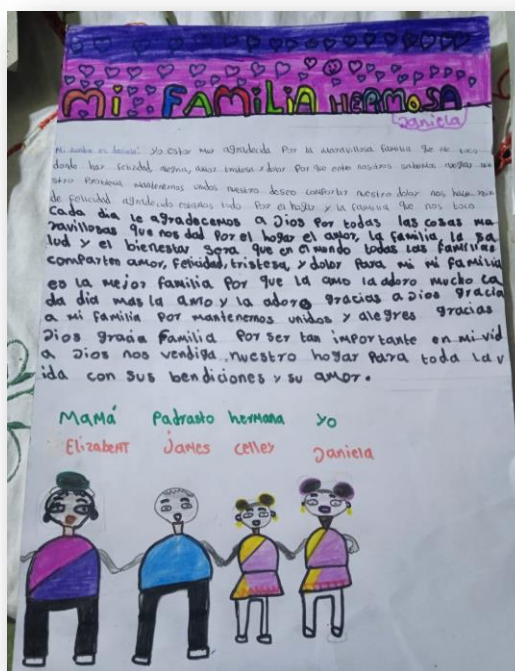 MI FAMILIA HERMOSA
Daniela
Mi nombre es Daniela: Yo estoy muy agradecida Por la maravillosa familia que me toco
donde hay felicidad alegria, amor tristesa y dolor Por que entre nosotros sabemos
stro Problema mantenernos unidos nuestro deseo compartir nuestro dolor nos hace
de felicidad agradecida estamos todo Por el hogar y la familia que nos toco
Cada dia le agradecemos a Dios Por todas las cosas ma
ravillosas que nos dad Por el hogar el amor, la familia, la sa
lud y el bienestar sera que en el mundo todas las familias
comparten amor, felicidad, tristesa, y dolor Para mi mi familia
es la mejor familia Por que la amo la adoro mucho ca
da dia mas la amo y la adoro gracias a Dios gracia
a mi familia Por mantenernos unidos y alegres gracias
Dios gracia familia Por ser tan importante en mi vid
a Dios nos vendiga nuestro hogar Para toda la v
ida con sus bendiciones y su amor.
Mamá Padrasto hermana yo
Elizabent James Celley Daniela